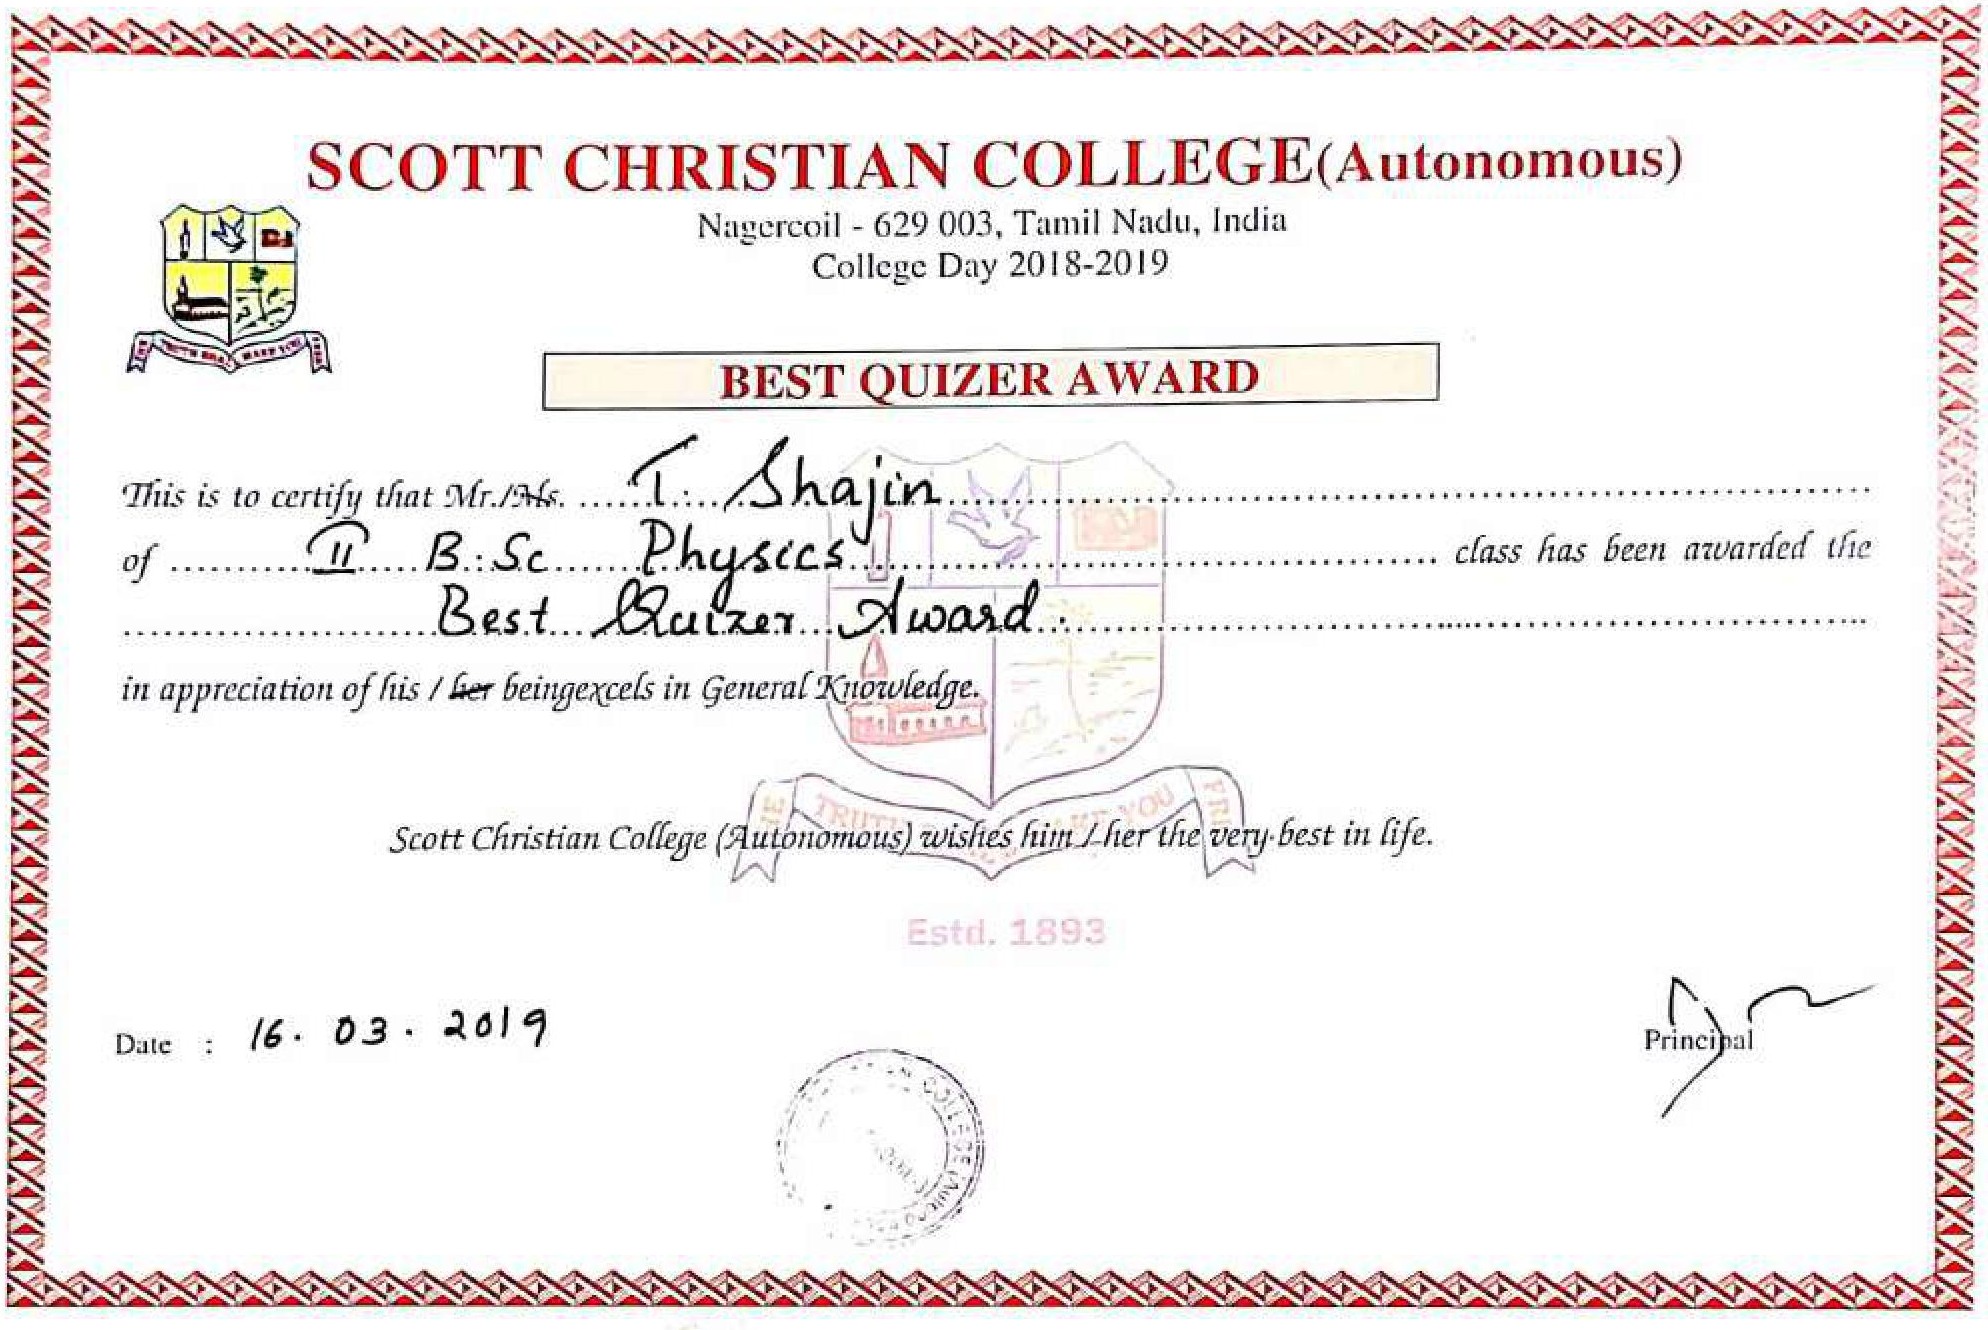 SCOTT CHRISTIAN COLLEGE(Autonomous)
Nagercoil - 629 003, Tamil Nadu, India
College Day 2018-2019
BEST QUIZER AWARD
This is to certify that Mr./Ms. ......T. Shajin..............................
of ............II B.Sc Physics.............................. class has been awarded the
..............................Best Quizer Award..............................
in appreciation of his / her beingexcels in General Knowledge.
THE TRUTH MAKE YOU FREE
Scott Christian College (Autonomous) wishes him / her the very best in life.
Estd. 1893
Date : 16. 03. 2019
Principal
COLLEGE